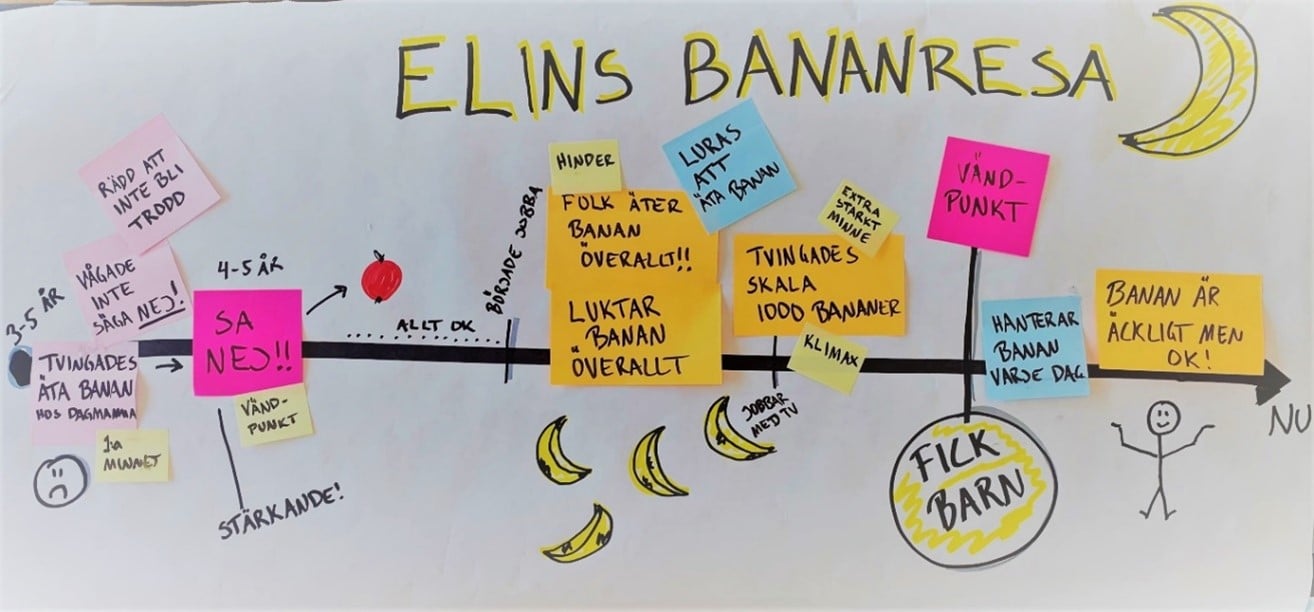 ELINS BANANRESA
RÄDD ATT
INTE BLI
TRODD
VÅGADE
INTE
SÄGA NEJ!
3-5 ÅR
TVINGADES
ÄTA BANAN
HOS DAGMAMMA
1:a
MINNET
4-5 ÅR
SA
NEJ!!
VÄND-
PUNKT
STÄRKANDE!
ALLT OK
BÖRJADE JOBBA
HINDER
FOLK ÄTER
BANAN
ÖVERALLT!!
LUKTAR
BANAN
ÖVERALLT
LURAS
ATT
ÄTA BANAN
EXTRA
STARKT
MINNE
TVINGADES
SKALA
1000 BANANER
KLIMAX
JOBBAR
MED TV
VÄND-
PUNKT
FICK
BARN
HANTERAR
BANAN
VARJE DAG
BANAN ÄR
ÄCKLIGT MEN
OK!
NU